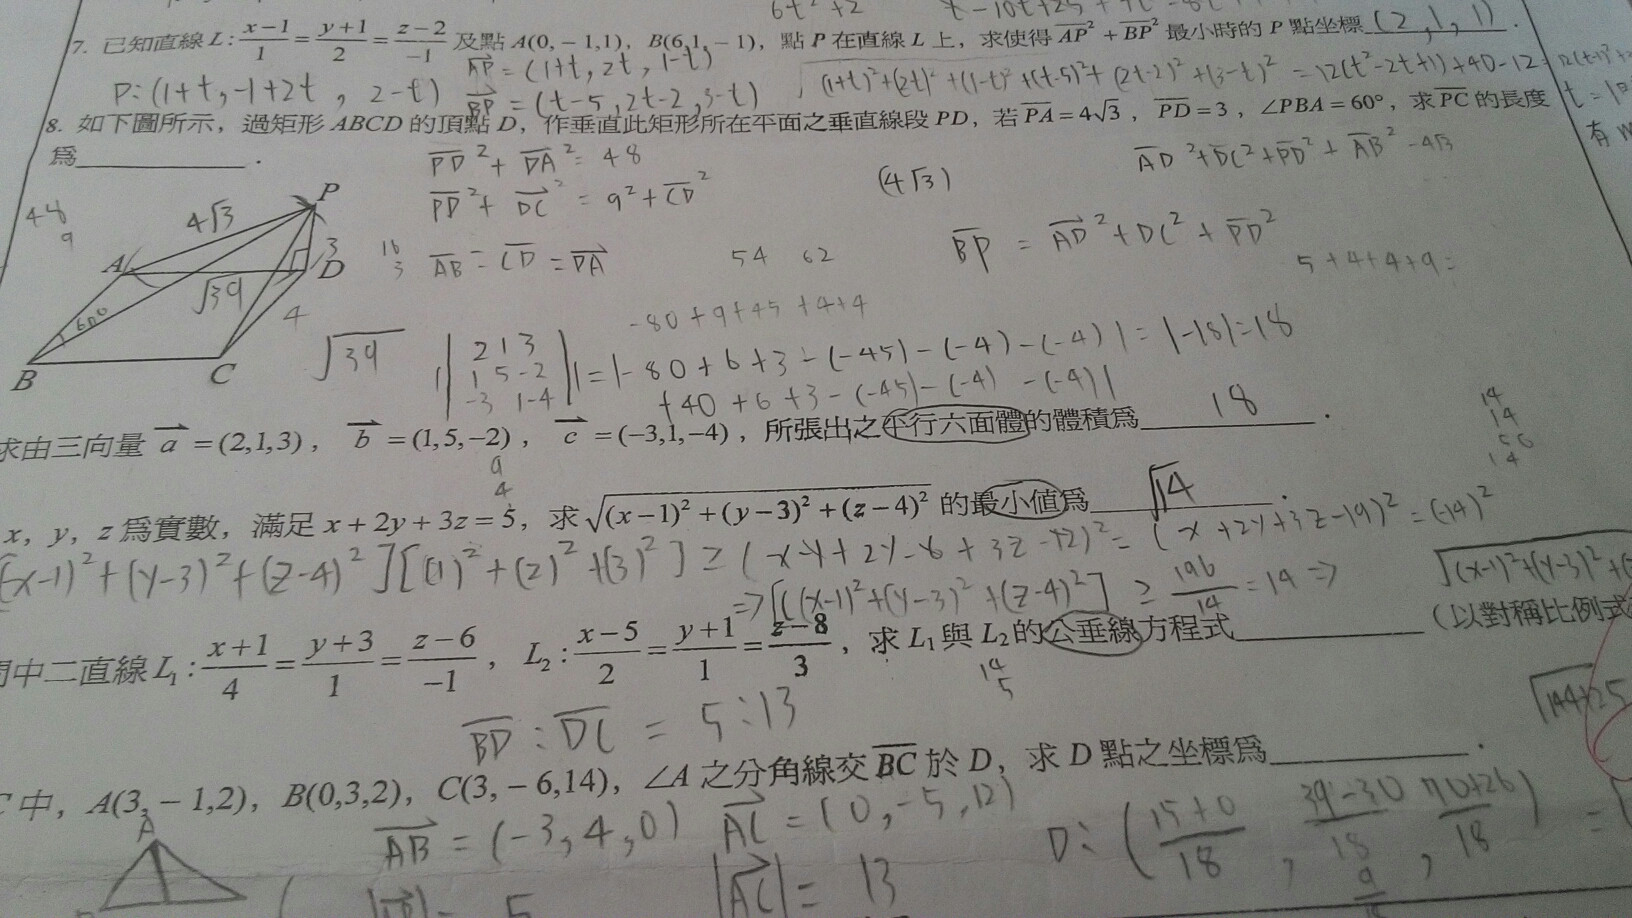 6t²+2
7. 已知直線 L: (x-1)/1 = (y+1)/2 = (z-2)/-1 及點 A(0,-1,1), B(6,1,-1), 點 P 在直線 L 上, 求使得 AP² + BP² 最小時的 P 點坐標 (2,1,1).
AP = (1+t, 2t, 1-t)
P:(1+t, -1+2t, 2-t) BP = (t-5, 2t-2, 3-t), (1+t)²+(2t)²+(1-t)²+(t-5)²+(2t-2)²+(3-t)² = 12(t²-2t+1)+40-12
8. 如下圖所示, 過矩形 ABCD 的頂點 D, 作垂直此矩形所在平面之垂直線段 PD, 若 PA = 4√3, PD = 3, ∠PBA = 60°, 求 PC 的長度
為 .
有
PD² + DA² = 48
(4√3)
AD²+DC²+PD²+AB²-4√3
PD² + DC² = 9² + CD²
48
9
4√3
P
3
A
D
√39
4
60°
B
C
16
3
AB = CD = DA
54 62
BP = AD²+DC²+PD²
5+4+4+9=
√39
-80+9+45+4+4
| 2 1 3
1 5 -2
-3 1 -4 | = |-80+6+3-(-45)-(-4)-(-4)| = |-18| = 18
+40+6+3-(-45)-(-4)-(-4)|
求由三向量 a = (2,1,3), b = (1,5,-2), c = (-3,1,-4), 所張出之平行六面體的體積為 18 .
9
4
14
14
56
14
x, y, z 為實數, 滿足 x+2y+3z = 5, 求 √((x-1)²+(y-3)²+(z-4)²) 的最小值為 √14 .
(x-1)²+(y-3)²+(z-4)²][(1)²+(2)²+(3)²] ≥ (x-1+2y-6+3z-12)² = (x+2y+3z-19)² = (-14)²
⇒ [(x-1)²+(y-3)²+(z-4)²] ≥ 196/14 = 14 ⇒ √(x-1)²+(y-3)²+
間中二直線 L₁: (x+1)/4 = (y+3)/1 = (z-6)/-1, L₂: (x-5)/2 = (y+1)/1 = (z-8)/3, 求 L₁ 與 L₂ 的公垂線方程式 (以對稱比例式
14
5
BD : DC = 5:13
√144+25
C 中, A(3,-1,2), B(0,3,2), C(3,-6,14), ∠A 之分角線交 BC 於 D, 求 D 點之坐標為 .
A
AB = (-3,4,0) AC = (0,-5,12)
D: ((15+0)/18, (39-30)/18, (70+26)/18) =
|AC| = 13
5
9